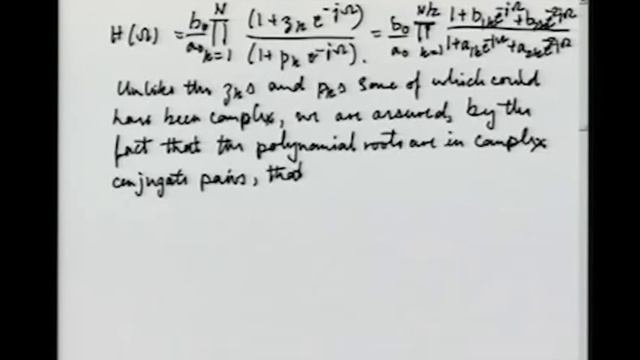 H(Ω) = b₀/a₀ ∏_{k=1}^{N} (1 + z_k e^{-jΩ}) / (1 + p_k e^{-jΩ}) = b₀/a₀ ∏_{k=1}^{N/2} (1 + b_{1k} e^{-jΩ} + b_{2k} e^{-2jΩ}) / (1 + a_{1k} e^{-jΩ} + a_{2k} e^{-2jΩ})
Unlike the z_k s and p_k s some of which could
have been complex, we are assured, by the
fact that the polynomial roots are in complex
conjugate pairs, that